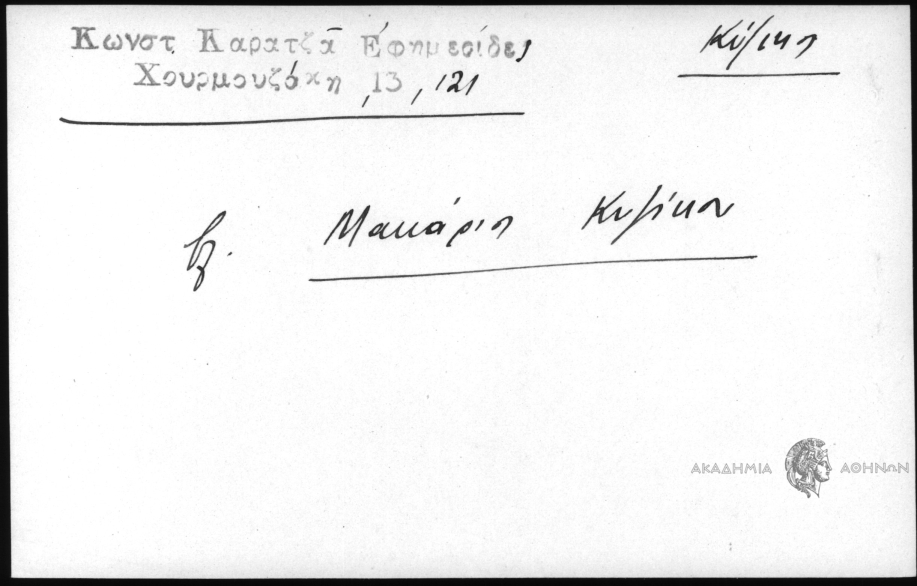 Κωνστ. Καρατζᾶ Ἐφημερίδες
Κύζικος
Χουρμουζάκη, 13, 121
βλ. Μακάριος Κυζίκου
ΑΚΑΔΗΜΙΑ ΑΘΗΝΩΝ